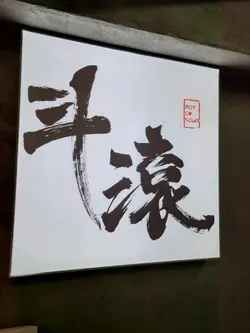 斗滾
POT
OF
SOUP